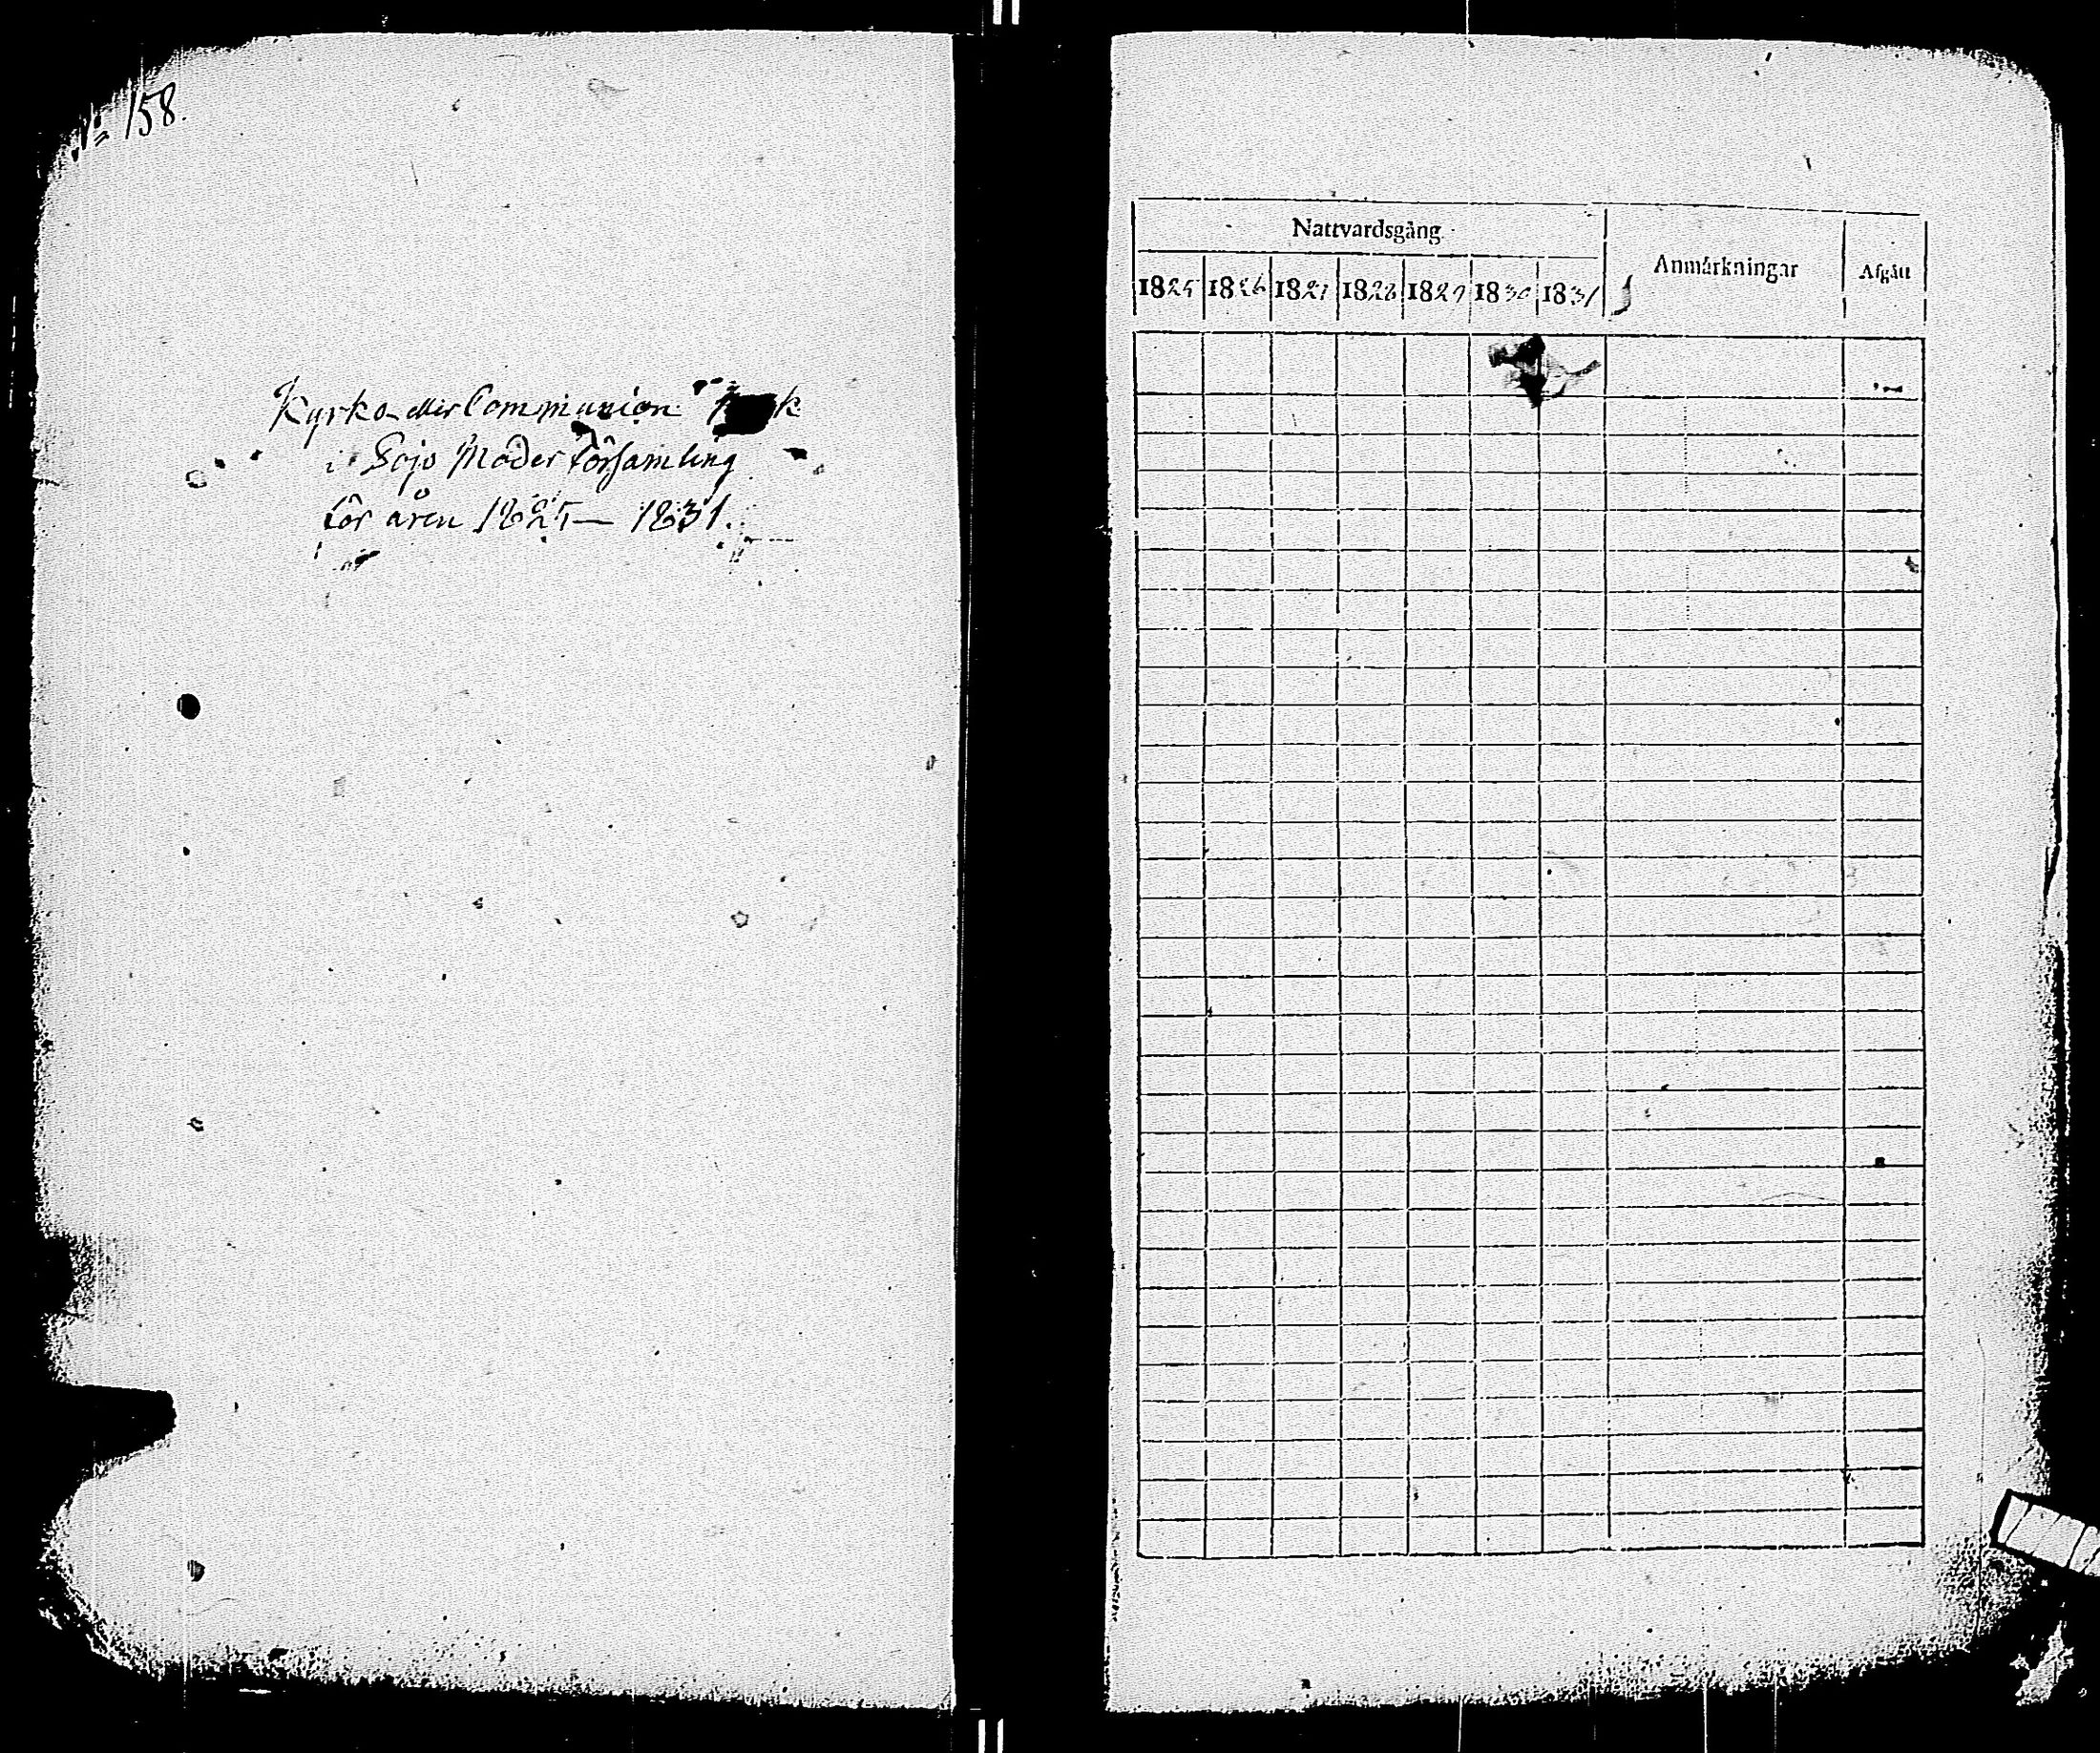 № 158.
Kyrko eller Communion
i Lojo Moder församling
för åren 1825 — 1831.
Nattvardsgång
Anmärkningar
Afgått
1825 1826 1827 1828 1829 1830 1831